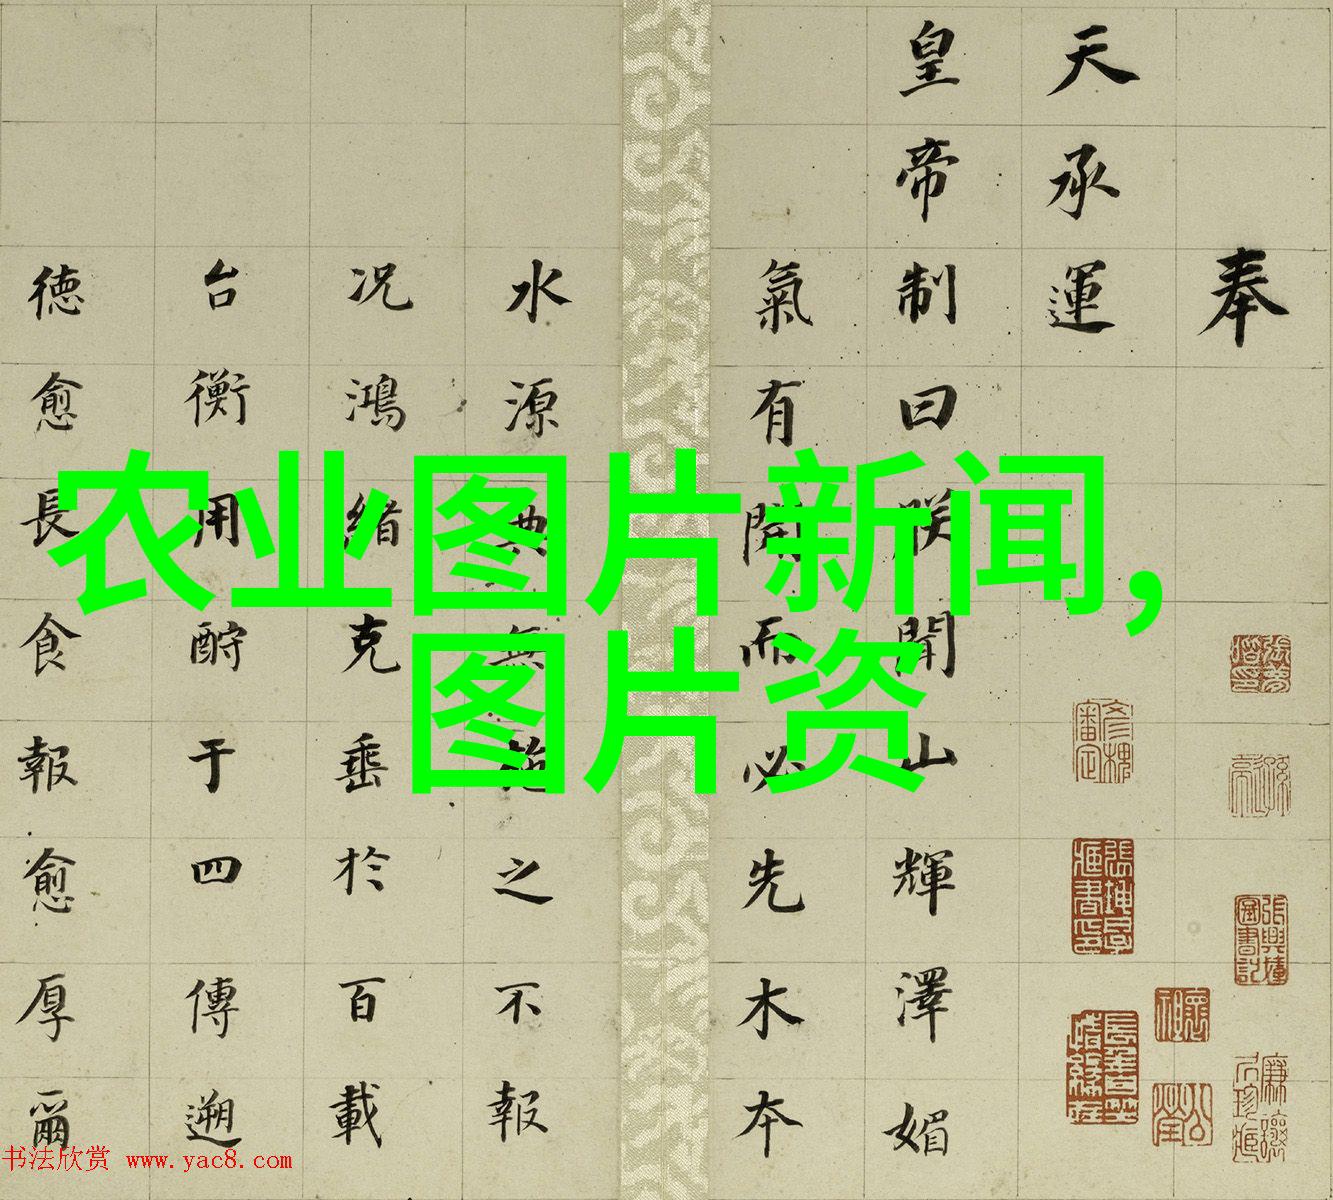 奉
天承運
皇帝制曰朕聞山輝澤媚
氣有開而必先木本
水源典無施之不報
况鴻緒克垂於百載
台衡用酧于四傳遡
徳愈長食報愈厚爾
农业图片新闻,
图片资
书法欣赏 www.yac8.com